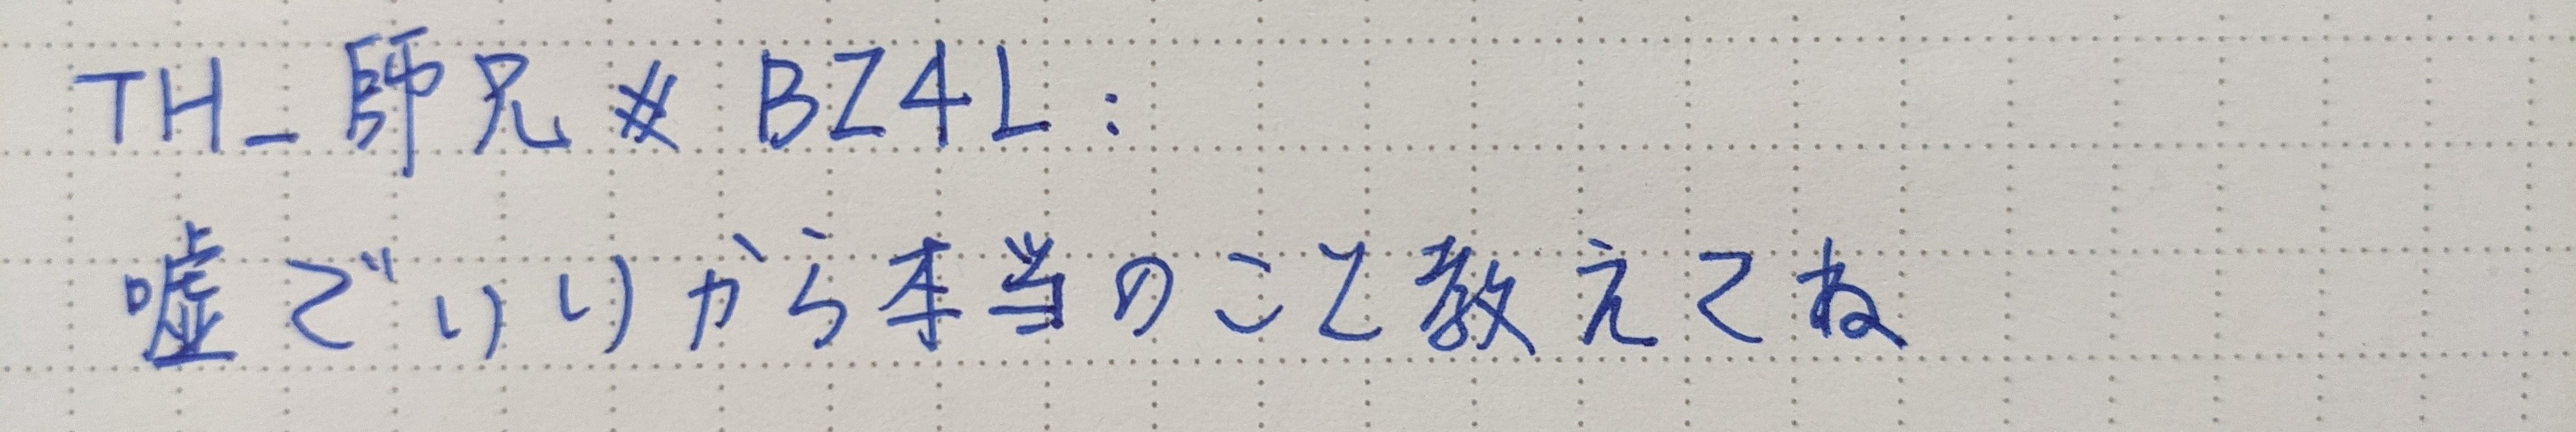 TH_師兄#BZ4L:
嘘でいいから本当のこと教えてね